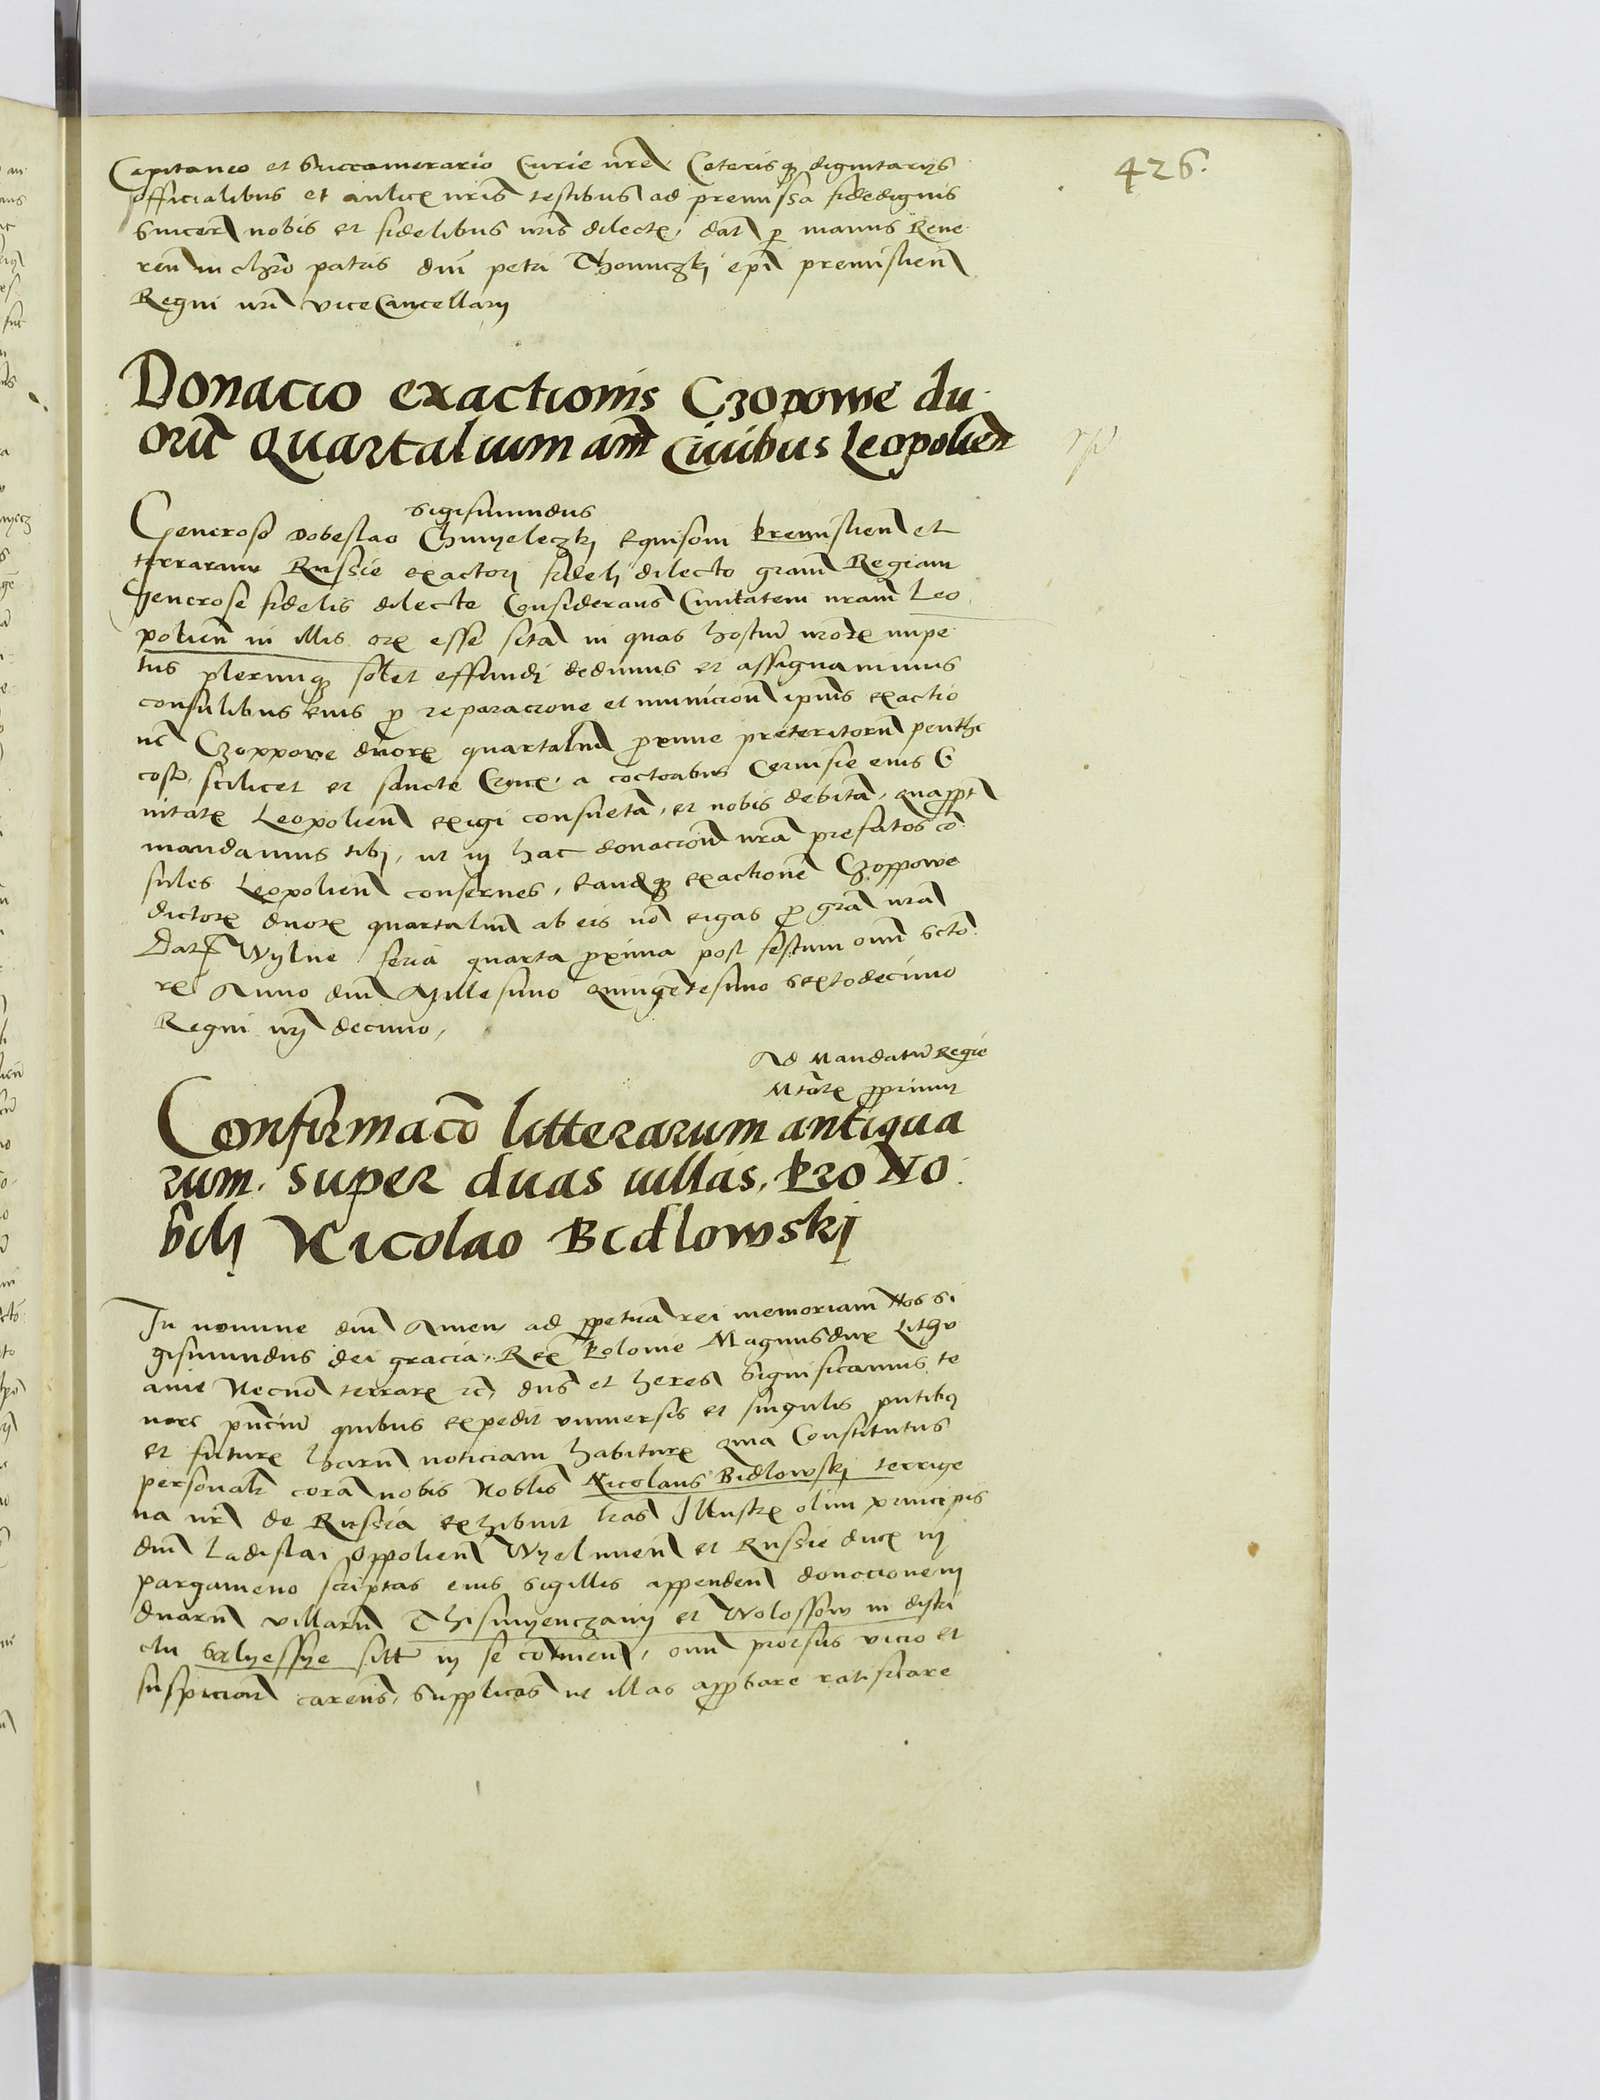 426.
Capitaneo et Succamerario Curie nre Ceterisqꝫ dignitarijs
officialibus et aulicꝫ nris testibus ad premissa fidedignis
Sincere nobis et fidelibus nris dilectꝫ, dat p manus Reve
ren in chro patris dni petri Thomiczkj epi premislien
Regni nri viceCancellarij
Donacio exactionis Czopowe du
oru Quartalium am Civibus Leopolien
Sigismundus
Generoso Dobeslao Chmyeleczkj equisoni Premislien et
terrarum Russie exactorj fidelj dilecto gram Regiam
Generose fidelis dilecte Considerans Civitatem nram Leo
polien in illis orꝫ esse sita in quas hostiu nrorꝫ impe
tus plerumqꝫ solet effundj dedimus et assignavimus
consulibus eius p reparacione et municion ipius exactio
ne Czopowe duorꝫ quartaliu proxime preteritoru penthe
cost, scilicet et sancte Crucꝫ, a coctoribus Cervisie eius Ci
vitatꝫ Leopolien exigi consueta, et nobis debita, quapropt
mandamus tibj, ut in hac donacion nra prefatos co
sules Leopolien conserves, eandqꝫ exactione Czoppowe
dictorꝫ duorꝫ quartaliu ab eis no exigas p gra nra
Dat Wylne feria quarta proxima post festum omn scto
rꝫ Anno dni Millesimo quingetesimo Sextodecimo
Regni nrj decimo,
Ad Mandatu Regie
Mtatꝫ proprium
Confirmaco litterarum antiqua
rum. super duas villas, pro No
bilj Nicolao Bidlowskj
In nomine dni Amen ad ppetua rei memoriam Nos Si
gismundus dei gracia, Rex Polonie Magnusdux Lithv
anie Necno terrarꝫ ꝛc, dns et heres Significamus te
nore pnciu quibus expedit universis et singulis pntibꝫ
et futurꝫ haru noticiam habiturꝫ quia Constitutus
personalr cora nobis Noblis Nicolaus Bidlowskj terrige
na nr de Russia exhibuit lras Illustrꝫ olim principis
dni Ladislai Oppolien Wyelunen et Russie ducꝫ in
pargameno scriptas eius sigillis appenden donocionem
duaru villaru Thismyenczanij et Wolossow in distri
ctu halyessye sitt in se continen, omn prorsus vicio et
suspicion carens, Supplicas ut illas approbare ratificare